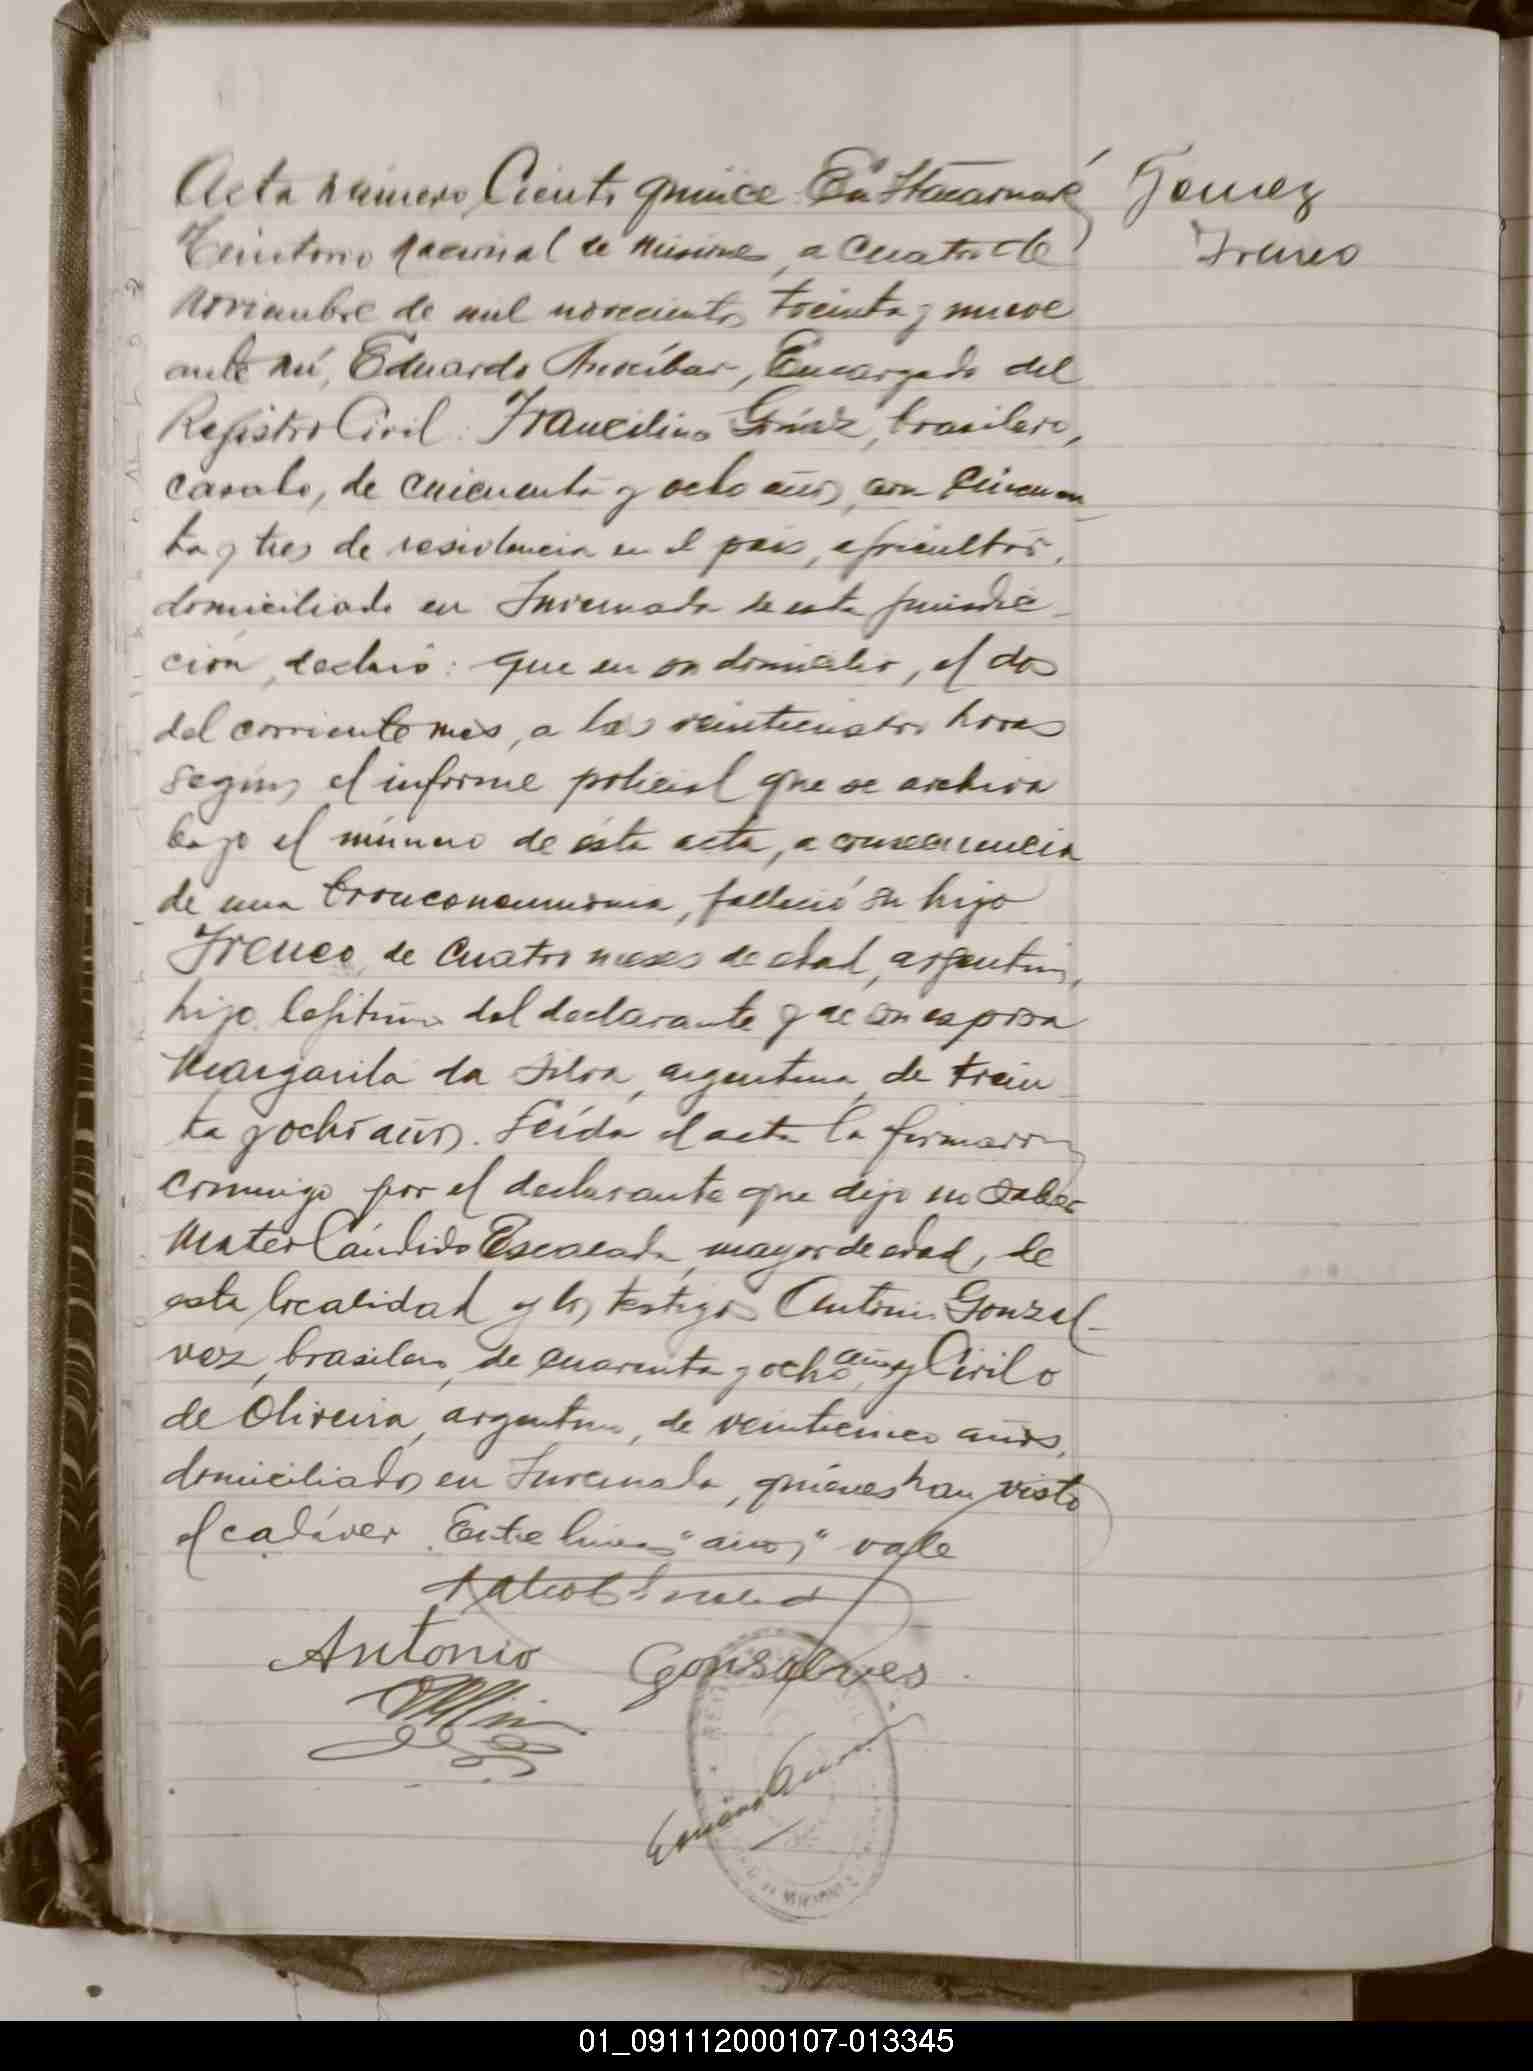 Acta número Ciento quince. En Itacaruaré
Gomez
Territorio Nacional de Misiones, a cuatro de
Ireneo
Noviembre de mil novecientos treinta y nueve
ante mí, Eduardo, Encargado del
Registro Civil: Francilino Gómez, brasilero,
casado, de cincuenta y ocho años, con cincuen-
ta y tres de residencia en el país, agricultor,
domiciliado en Invernada de esta jurisdic-
ción, declaró: que en su domicilio, el dos
del corriente mes, a las veinticuatro horas
según el informe policial que se archiva
bajo el número de ésta acta, a consecuencia
de una bronconeumonia, falleció su hijo
Ireneo, de cuatro meses de edad, argentino,
hijo legítimo del declarante y de su esposa
Margarita da Silva, argentina, de trein-
ta y ocho años. Leída el acta la firmaron
conmigo por el declarante que dijo no saber
Mateo Cándido Escalada, mayor de edad, de
esta localidad y los testigos Antonio Gonzal-
vez, brasilero, de cuarenta y ocho años, y Cirilo
de Oliveira, argentino, de veinticinco años,
domiciliados en Invernada, quiénes han visto
el cadáver. Entre lineas "años," vale
Antonio Gonsalves
01_091112000107-013345